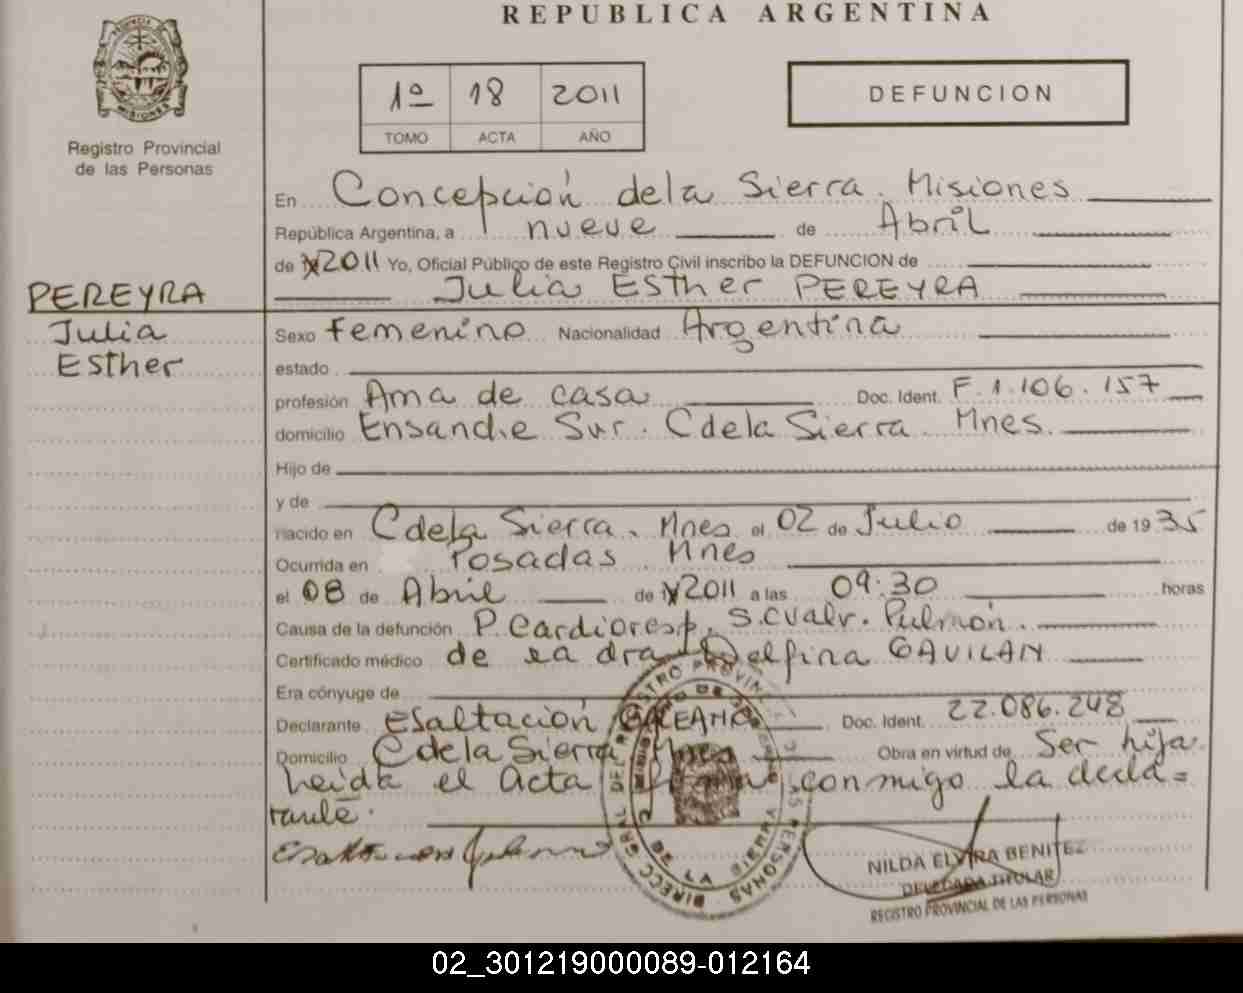 REPUBLICA ARGENTINA
PROVINCIA DE MISIONES
Registro Provincial
de las Personas
1º 18 2011
TOMO ACTA AÑO
DEFUNCION
En Concepción de la Sierra. Misiones
República Argentina, a nueve de Abril
de 2011 Yo, Oficial Público de este Registro Civil inscribo la DEFUNCION de
Julia Esther PEREYRA
PEREYRA
Julia
Esther
Sexo Femenino Nacionalidad Argentina
estado
profesión Ama de casa Doc. Ident. F. 1.106.157
domicilio Ensanche Sur. C de la Sierra. Mnes.
Hijo de
y de
nacido en C de la Sierra. Mnes el 02 de Julio de 1935
Ocurrida en Posadas Mnes
el 08 de Abril de 2011 a las 09:30 horas
Causa de la defunción P. Cardioresp. Pulmón.
Certificado médico de la dra Delfina GAVILAN
Era cónyuge de
Declarante Esaltación GALEANO Doc. Ident. 22.086.248
Domicilio C de la Sierra Mnes Obra en virtud de Ser hija
Leida el Acta firma conmigo la decla=
rante.
DIRECC. GRAL. DEL REGISTRO PROVINCIAL DE LAS PERSONAS
DE LA SIERRA
NILDA ELVIRA BENITEZ
DELEGADA TITULAR
REGISTRO PROVINCIAL DE LAS PERSONAS
02_301219000089-012164